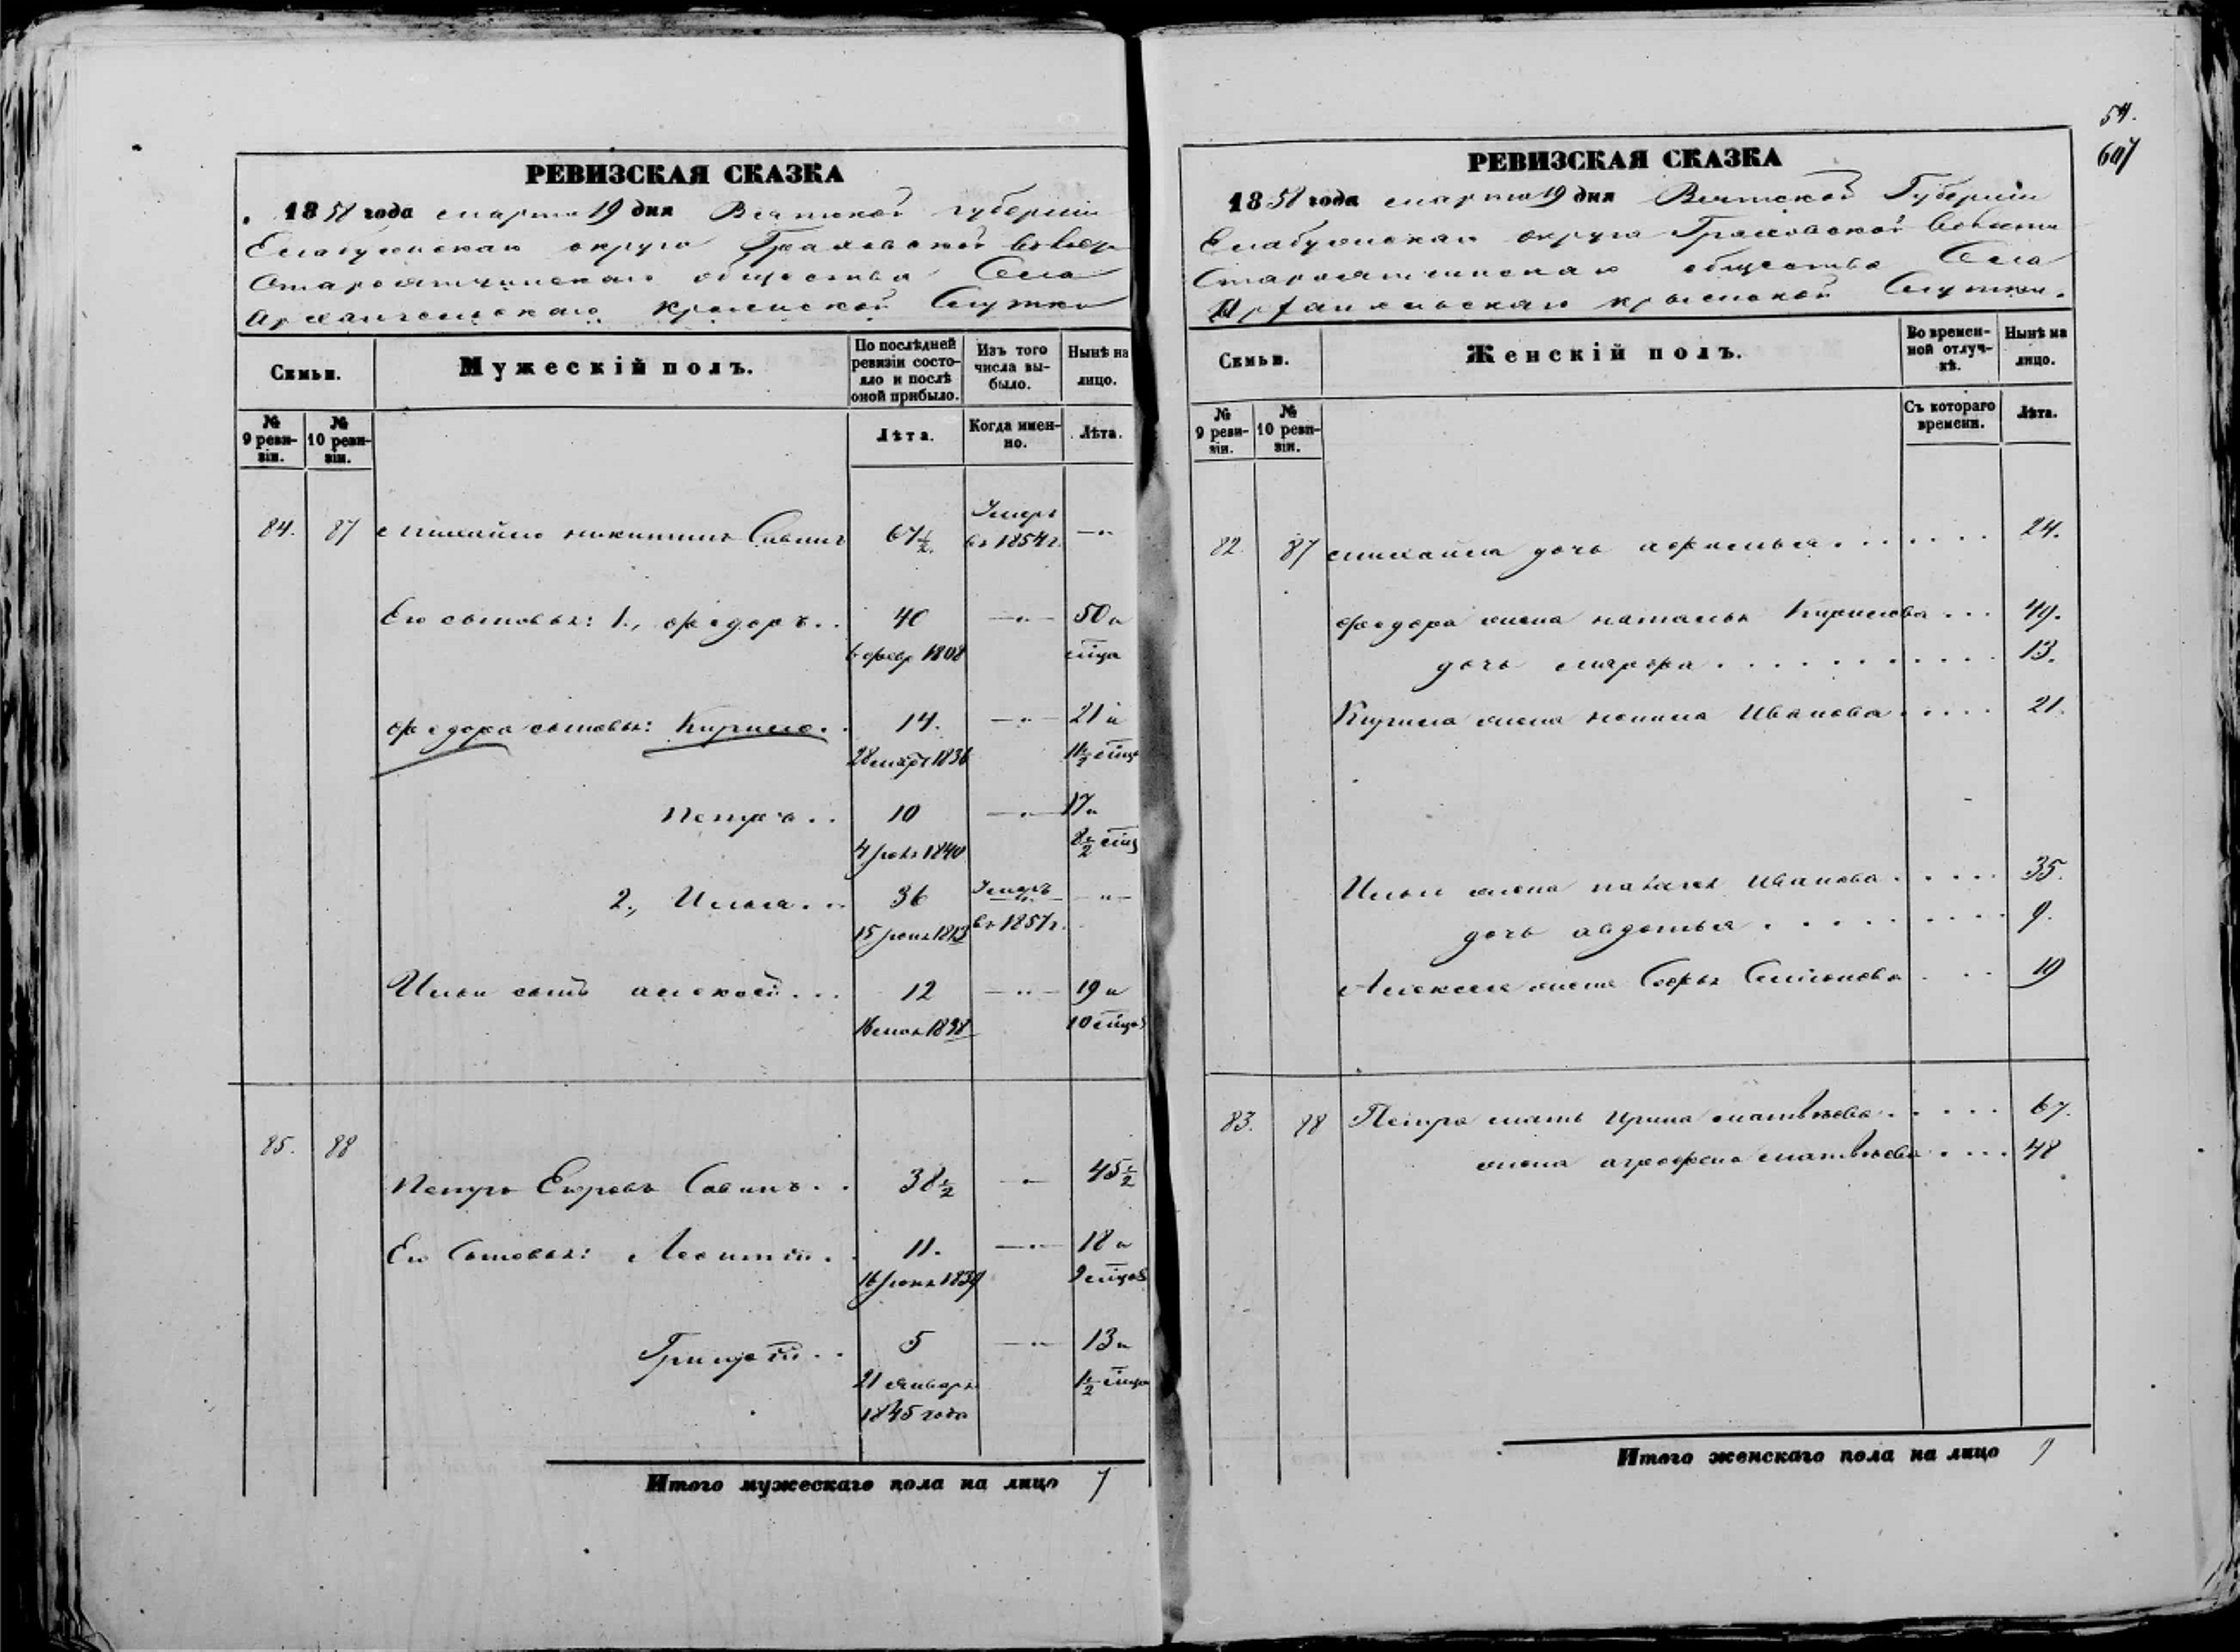 РЕВИЗСКАЯ СКАЗКА
1858 года марта 19 дня Вятской губернии
Елабужскаго округа Граховской волос
Староятчинскаго общества Села
Архангельскаго
Семьи.
Мужескій полъ.
По послѣдней ревизіи состояло и послѣ оной прибыло.
Изъ того числа выбыло.
Нынѣ на лицо.
№ 9 ревизіи.
№ 10 ревизіи.
Лѣта.
Когда именно.
Лѣта.
84. 87 Михайло Никитинъ Савинъ 67½ Умеръ въ 1854 г. —"
Его сыновья: 1., Федоръ.. 40 —"— 50 и
6 февр 1808 м҃ца
Федора сыновья: Кирило.. 14. —"— 21 и
28 мар 1836 11½ м҃ца
Петръ.. 10 —"— 17 и
4 1840 8½ м҃ц
2., Илья... 36 Умеръ —"—
15 1813 въ 1857 г.
Ильи сынъ Алексей... 12 —"— 19 и
16 мая 1838 10 м҃цов
85. 88
Петръ Егоровъ Савинъ.. 38½ —"— 45½
Его Сыновья: Леонтій.. 11. —"— 18 и
16 1839 9 м҃цов
Григорій.. 5 —"— 13 и
21 Января 1½ м҃ца
1845 года
Итого мужескаго пола на лицо 7
54.
607
РЕВИЗСКАЯ СКАЗКА
1858 года марта 19 дня Вятской Губерніи
Елабужскаго округа Граховской Волости
Староятчинскаго общества Села
Архангельскаго
Семьи.
Женскій полъ.
Во временной отлучкѣ.
Нынѣ на лицо.
№ 9 ревизіи.
№ 10 ревизіи.
Съ котораго времени.
Лѣта.
82. 87 Михайла дочь Афимья....... 24.
Федора жена Наталья Кирилова... 49.
дочь Марфа............ 13.
Кирила жена Ненила Иванова..... 21.
Ильи жена Иванова..... 35.
дочь Авдотья......... 9.
Алексея жена Софья Семенова... 19
83. 88 Петра мать Ирина Матвѣева..... 67.
жена Аграфена Матвѣева.... 48
Итого женскаго пола на лицо 9